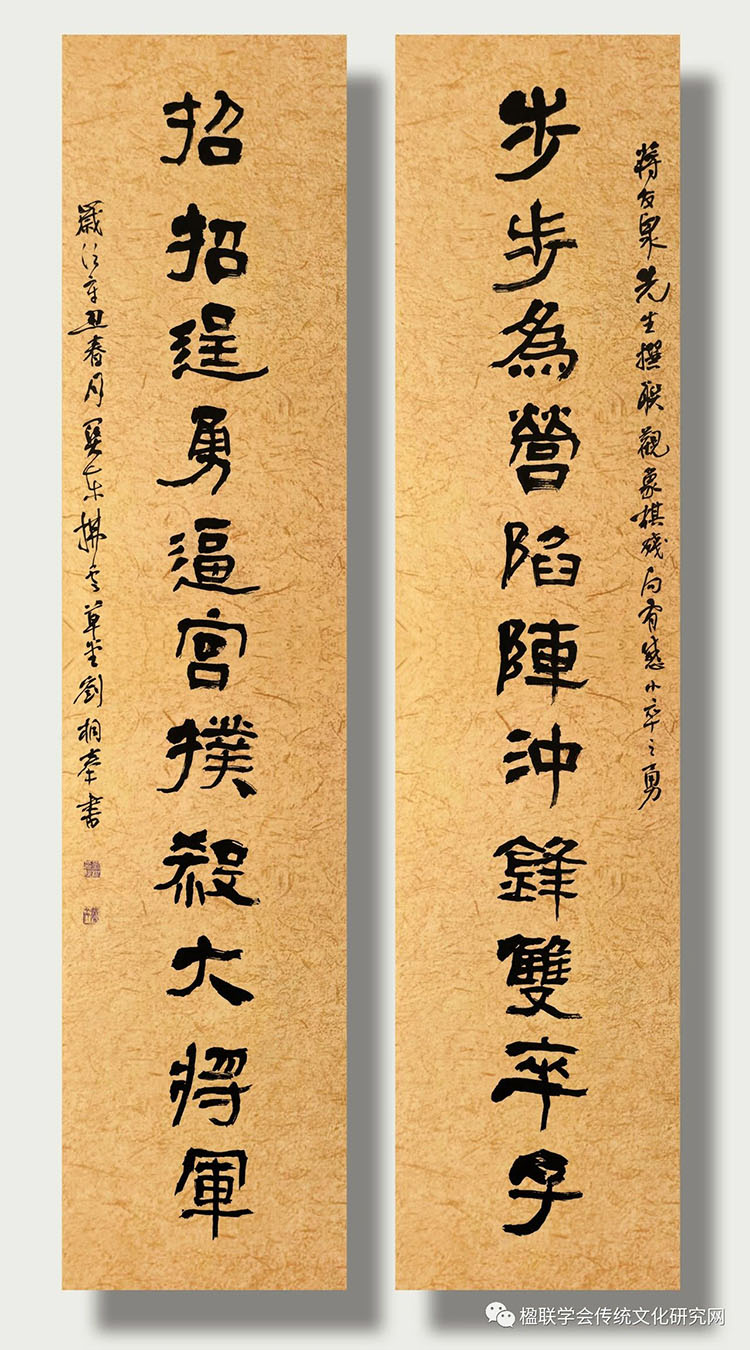 蔣友泉先生撰联觀象棋殘局有感小卒之勇
步步為營陷陣沖鋒雙卒子
招招逞勇逼宮撲殺大將軍
歲次辛丑春月関东拂云草堂劉書
楹联学会传统文化研究网